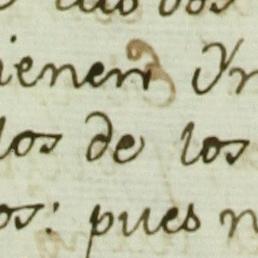 los
ienen Yn
los de los
os: pues n